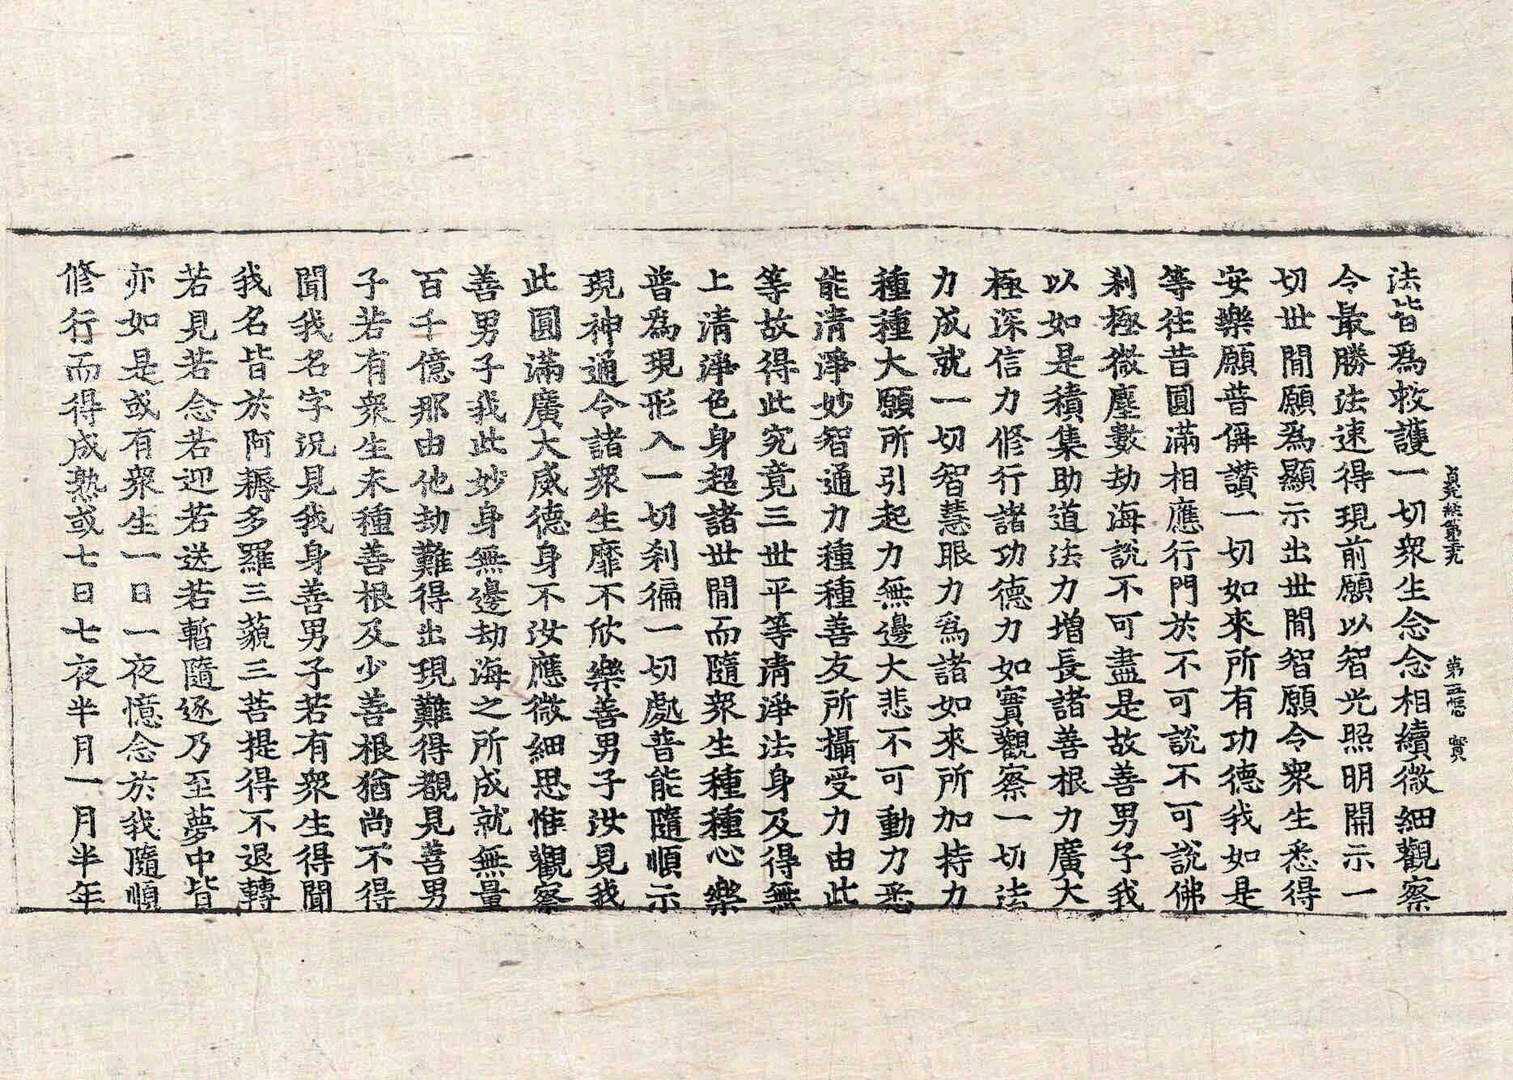 貞元經第 第五
法皆爲救護一切衆生念念相續微細觀察
令最勝法速得現前願以智光照明開示一
切世間願爲顯示出世間智願令衆生悉得
安樂願普偁讚一切如來所有功德我如是
等往昔圓滿相應行門於不可說不可說佛
刹極微塵數劫海說不可盡是故善男子我
以如是積集助道法力增長諸善根力廣大
極深信力修行諸功德力如實觀察一切法
力成就一切智慧眼力爲諸如來所加持力
種種大願所引起力無邊大悲不可動力悉
能清淨妙智通力種種善友所攝受力由此
等故得此究竟三世平等清淨法身及得無
上清淨色身超諸世間而隨衆生種種心樂
普爲現形入一切刹徧一切處普能隨順示
現神通令諸衆生靡不欣樂善男子汝見我
此圓滿廣大威德身不汝應微細思惟觀察
善男子我此妙身無邊劫海之所成就無量
百千億那由他劫難得出現難得觀見善男
子若有衆生未種善根及少善根猶尚不得
聞我名字況見我身善男子若有衆生得聞
我名皆於阿耨多羅三藐三菩提得不退轉
若見若念若迎若送若暫隨逐乃至夢中皆
亦如是或有衆生一日一夜憶念於我隨順
修行而得成熟或七日七夜半月一月半年